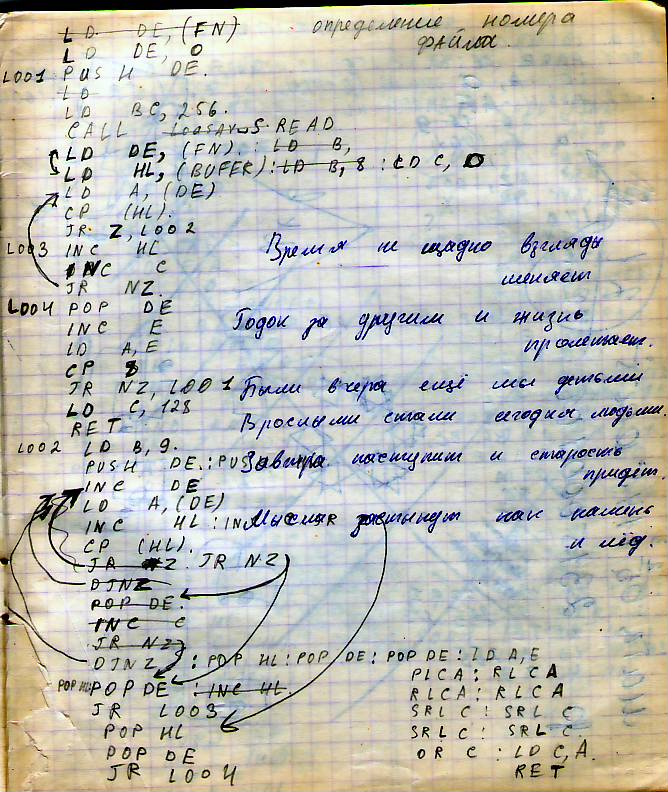 LD DE,(FN) определение номера
LD DE, 0 файла.
L001 PUSH DE.
LD
LD BC, 256.
CALL READ
LD DE, (FN). : LD B,
LD HL, (BUFER) : LD B, 8 : LD C, 0
LD A, (DE)
CP (HL).
JR Z, L002
L003 INC HL Время не щадно взгляды
INC C меняет
JR NZ.
L004 POP DE Годок за другим и жизнь
INC E пролетает.
LD A, E
CP 8
JR NZ, L001 Были вчера ещё мы детьми
LD C, 128 Врослыми стали сегодня людьми.
RET
L002 LD B, 9. Завтра наступит и старость
PUSH DE. : PUSH придёт.
INC DE
LD A, (DE)
INC HL : INC Мысли застынут как камень
CP (HL). и лёд.
JR NZ JR NZ
DJNZ
POP DE.
INC C
JR NZ
DJNZ : POP HL : POP DE : POP DE : LD A, E
POP HL POP DE : INC HL. RLCA : RLCA
JR L003 RLCA : RLCA
POP HL SRL C : SRL C
POP DE SRL C : SRL C.
JR L004 OR C : LD C, A.
RET